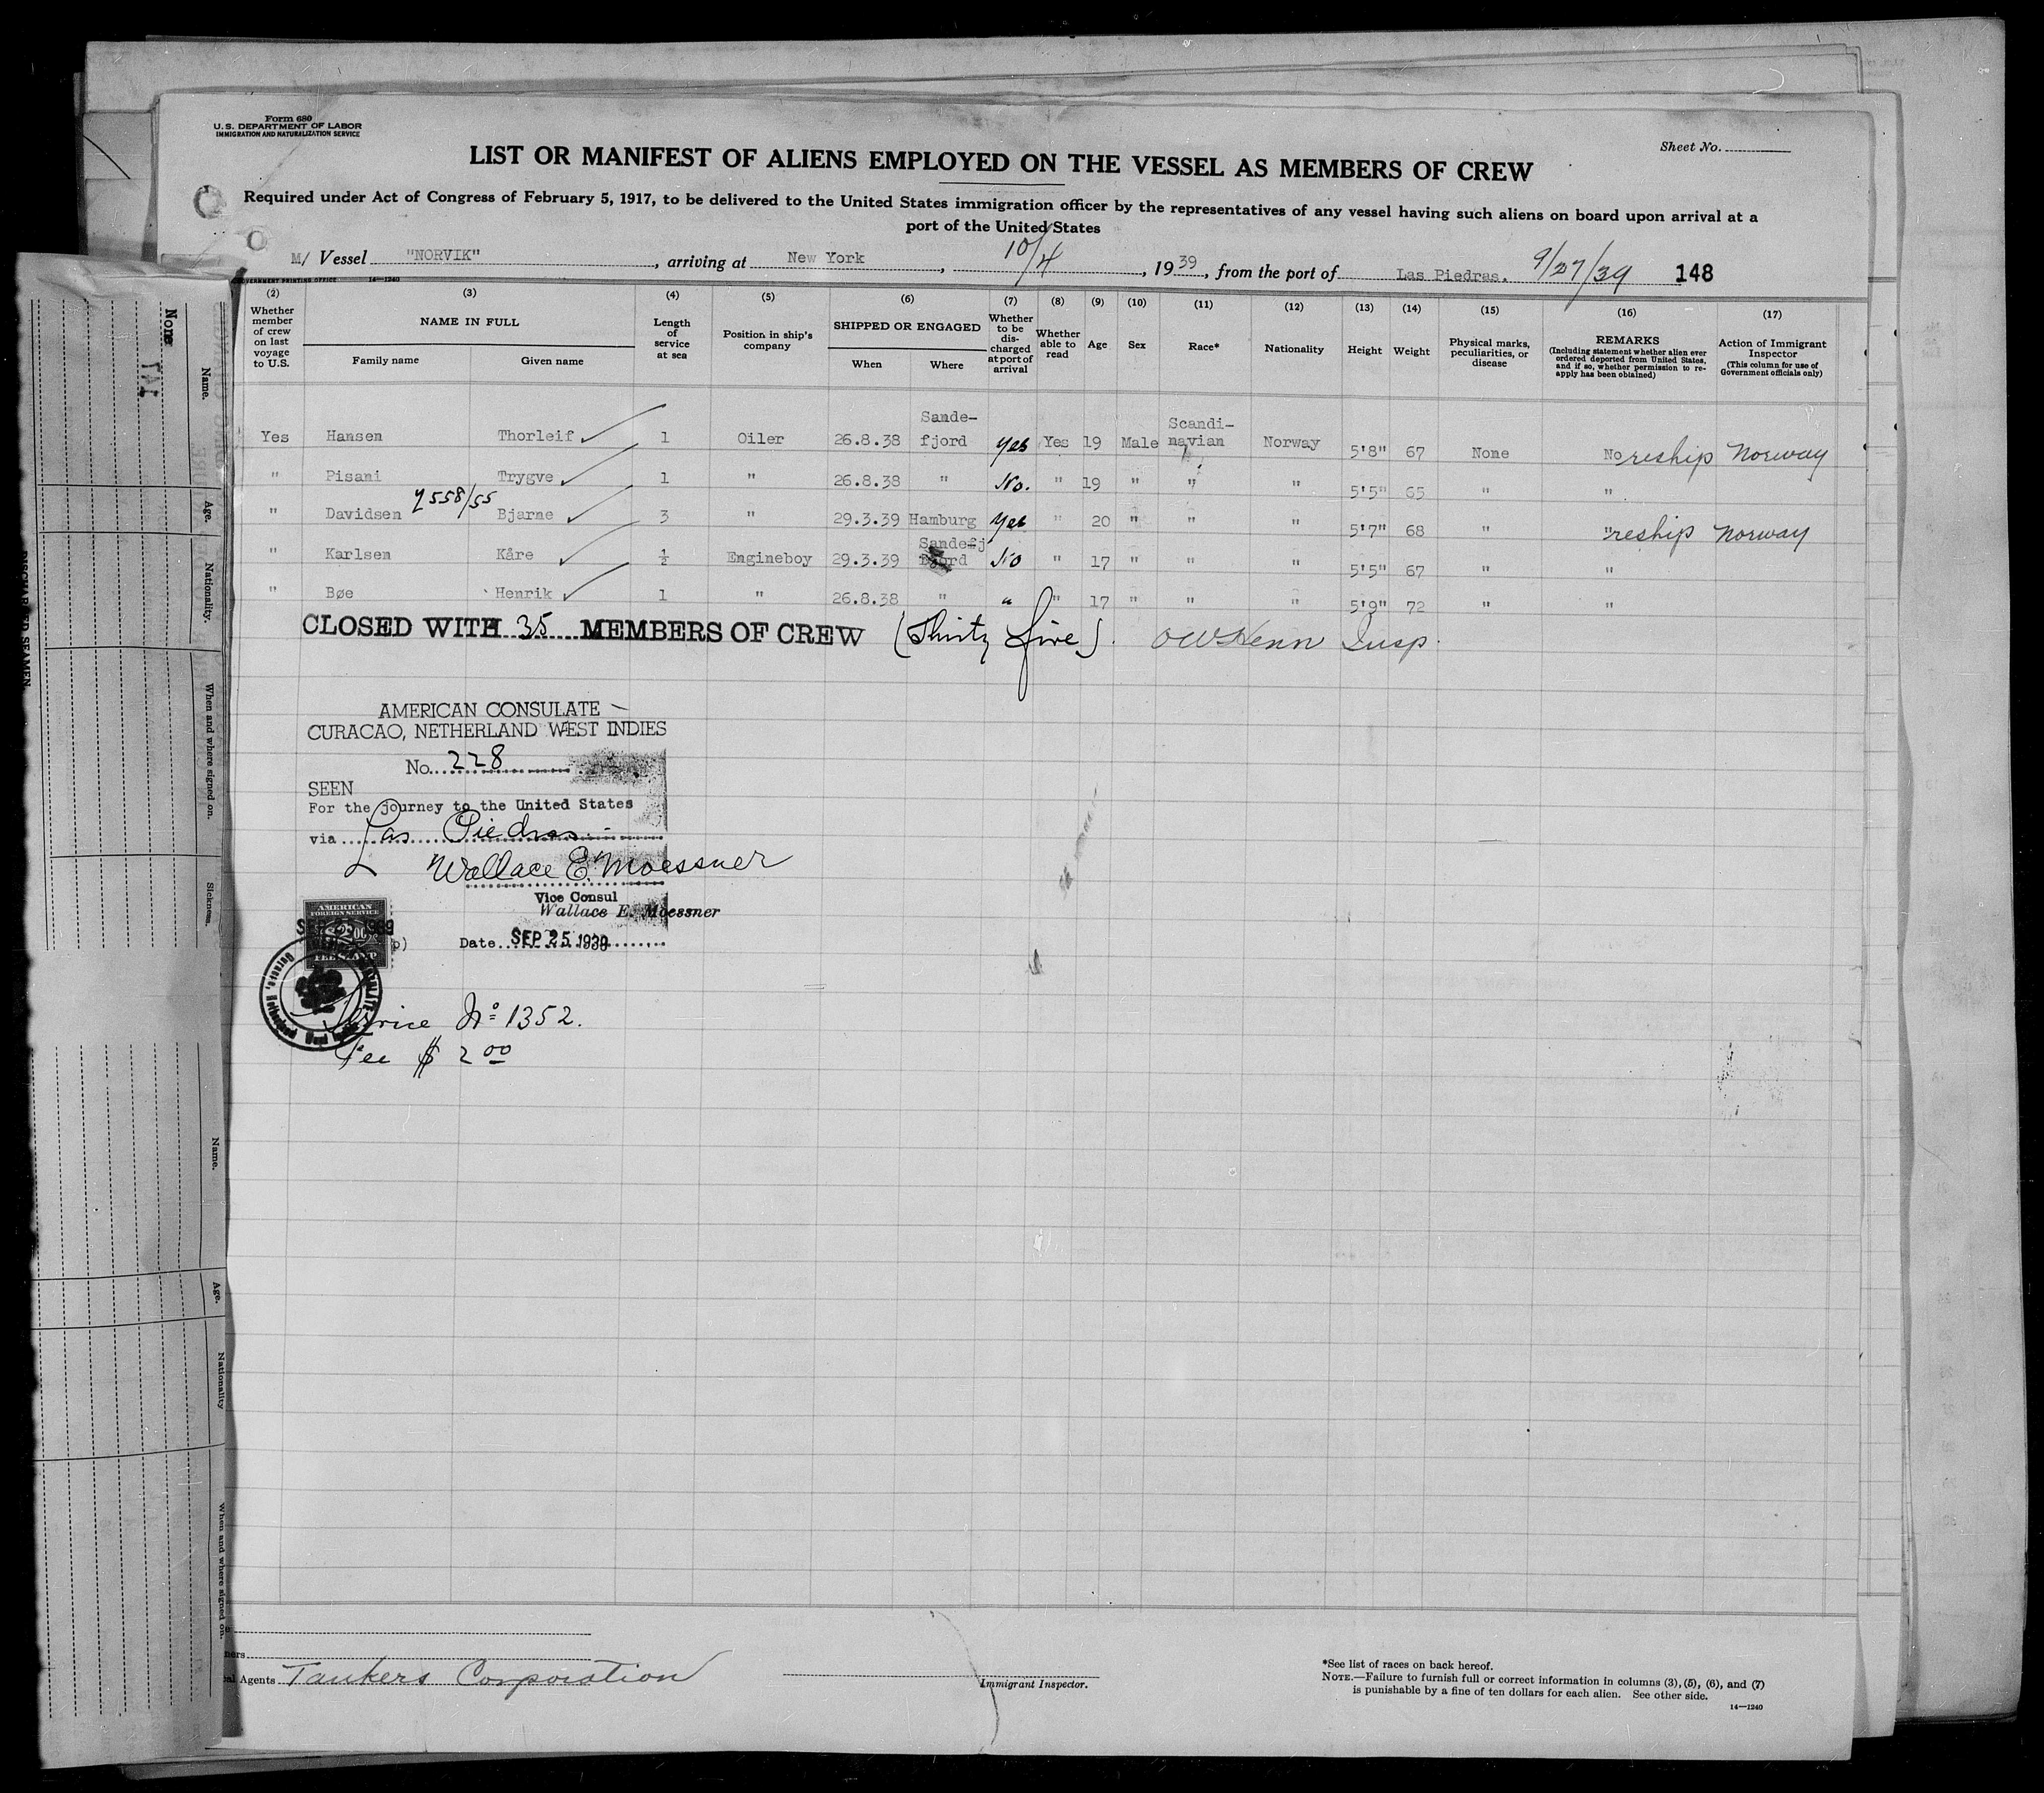 Form 680
U.S. DEPARTMENT OF LABOR
IMMIGRATION AND NATURALIZATION SERVICE
Sheet No.
LIST OR MANIFEST OF ALIENS EMPLOYED ON THE VESSEL AS MEMBERS OF CREW
Required under Act of Congress of February 5, 1917, to be delivered to the United States immigration officer by the representatives of any vessel having such aliens on board upon arrival at a
port of the United States
M/ Vessel "NORVIK", arriving at New York, 10/4, 1939, from the port of Las Piedras. 9/27/39 148
GOVERNMENT PRINTING OFFICE 14—1240
(2) (3) (4) (5) (6) (7) (8) (9) (10) (11) (12) (13) (14) (15) (16) (17)
Whether member of crew on last voyage to U.S.
NAME IN FULL
Family name Given name
Length of service at sea
Position in ship's company
SHIPPED OR ENGAGED
When Where
Whether to be discharged at port of arrival
Whether able to read
Age
Sex
Race*
Nationality
Height
Weight
Physical marks, peculiarities, or disease
REMARKS
(Including statement whether alien ever ordered deported from United States, and if so, whether permission to re-apply has been obtained)
Action of Immigrant Inspector
(This column for use of Government officials only)
Yes Hansen Thorleif 1 Oiler 26.8.38 Sande-fjord Yes Yes 19 Male Scandi-navian Norway 5'8" 67 None No reship Norway
" Pisani Trygve 1 " 26.8.38 " No. " 19 " " " 5'5" 65 " "
7558/55
" Davidsen Bjarne 3 " 29.3.39 Hamburg Yes " 20 " " " 5'7" 68 " " reship Norway
" Karlsen Kåre ½ Engineboy 29.3.39 Sandefj fjord No " 17 " " " 5'5" 67 " "
" Bøe Henrik 1 " 26.8.38 " " " 17 " " " 5'9" 72 " "
CLOSED WITH 35 MEMBERS OF CREW (Thirty five). OW Henn Insp.
AMERICAN CONSULATE
CURACAO, NETHERLAND WEST INDIES
No. 228
SEEN
For the journey to the United States
via Las Piedras
Wallace E. Moessner
Vice Consul
Wallace E. Moessner
AMERICAN
FOREIGN SERVICE
$2.00
FEE STAMP
Date SEP 25 1939
Service No. 1352.
Fee $ 2 00
Agents Tankers Corporation
Immigrant Inspector.
*See list of races on back hereof.
NOTE.—Failure to furnish full or correct information in columns (3), (5), (6), and (7)
is punishable by a fine of ten dollars for each alien. See other side.
14—1240
None
Name.
Age.
Nationality.
When and where signed on.
Sickness.
Name.
Age.
Nationality
When and where signed on.